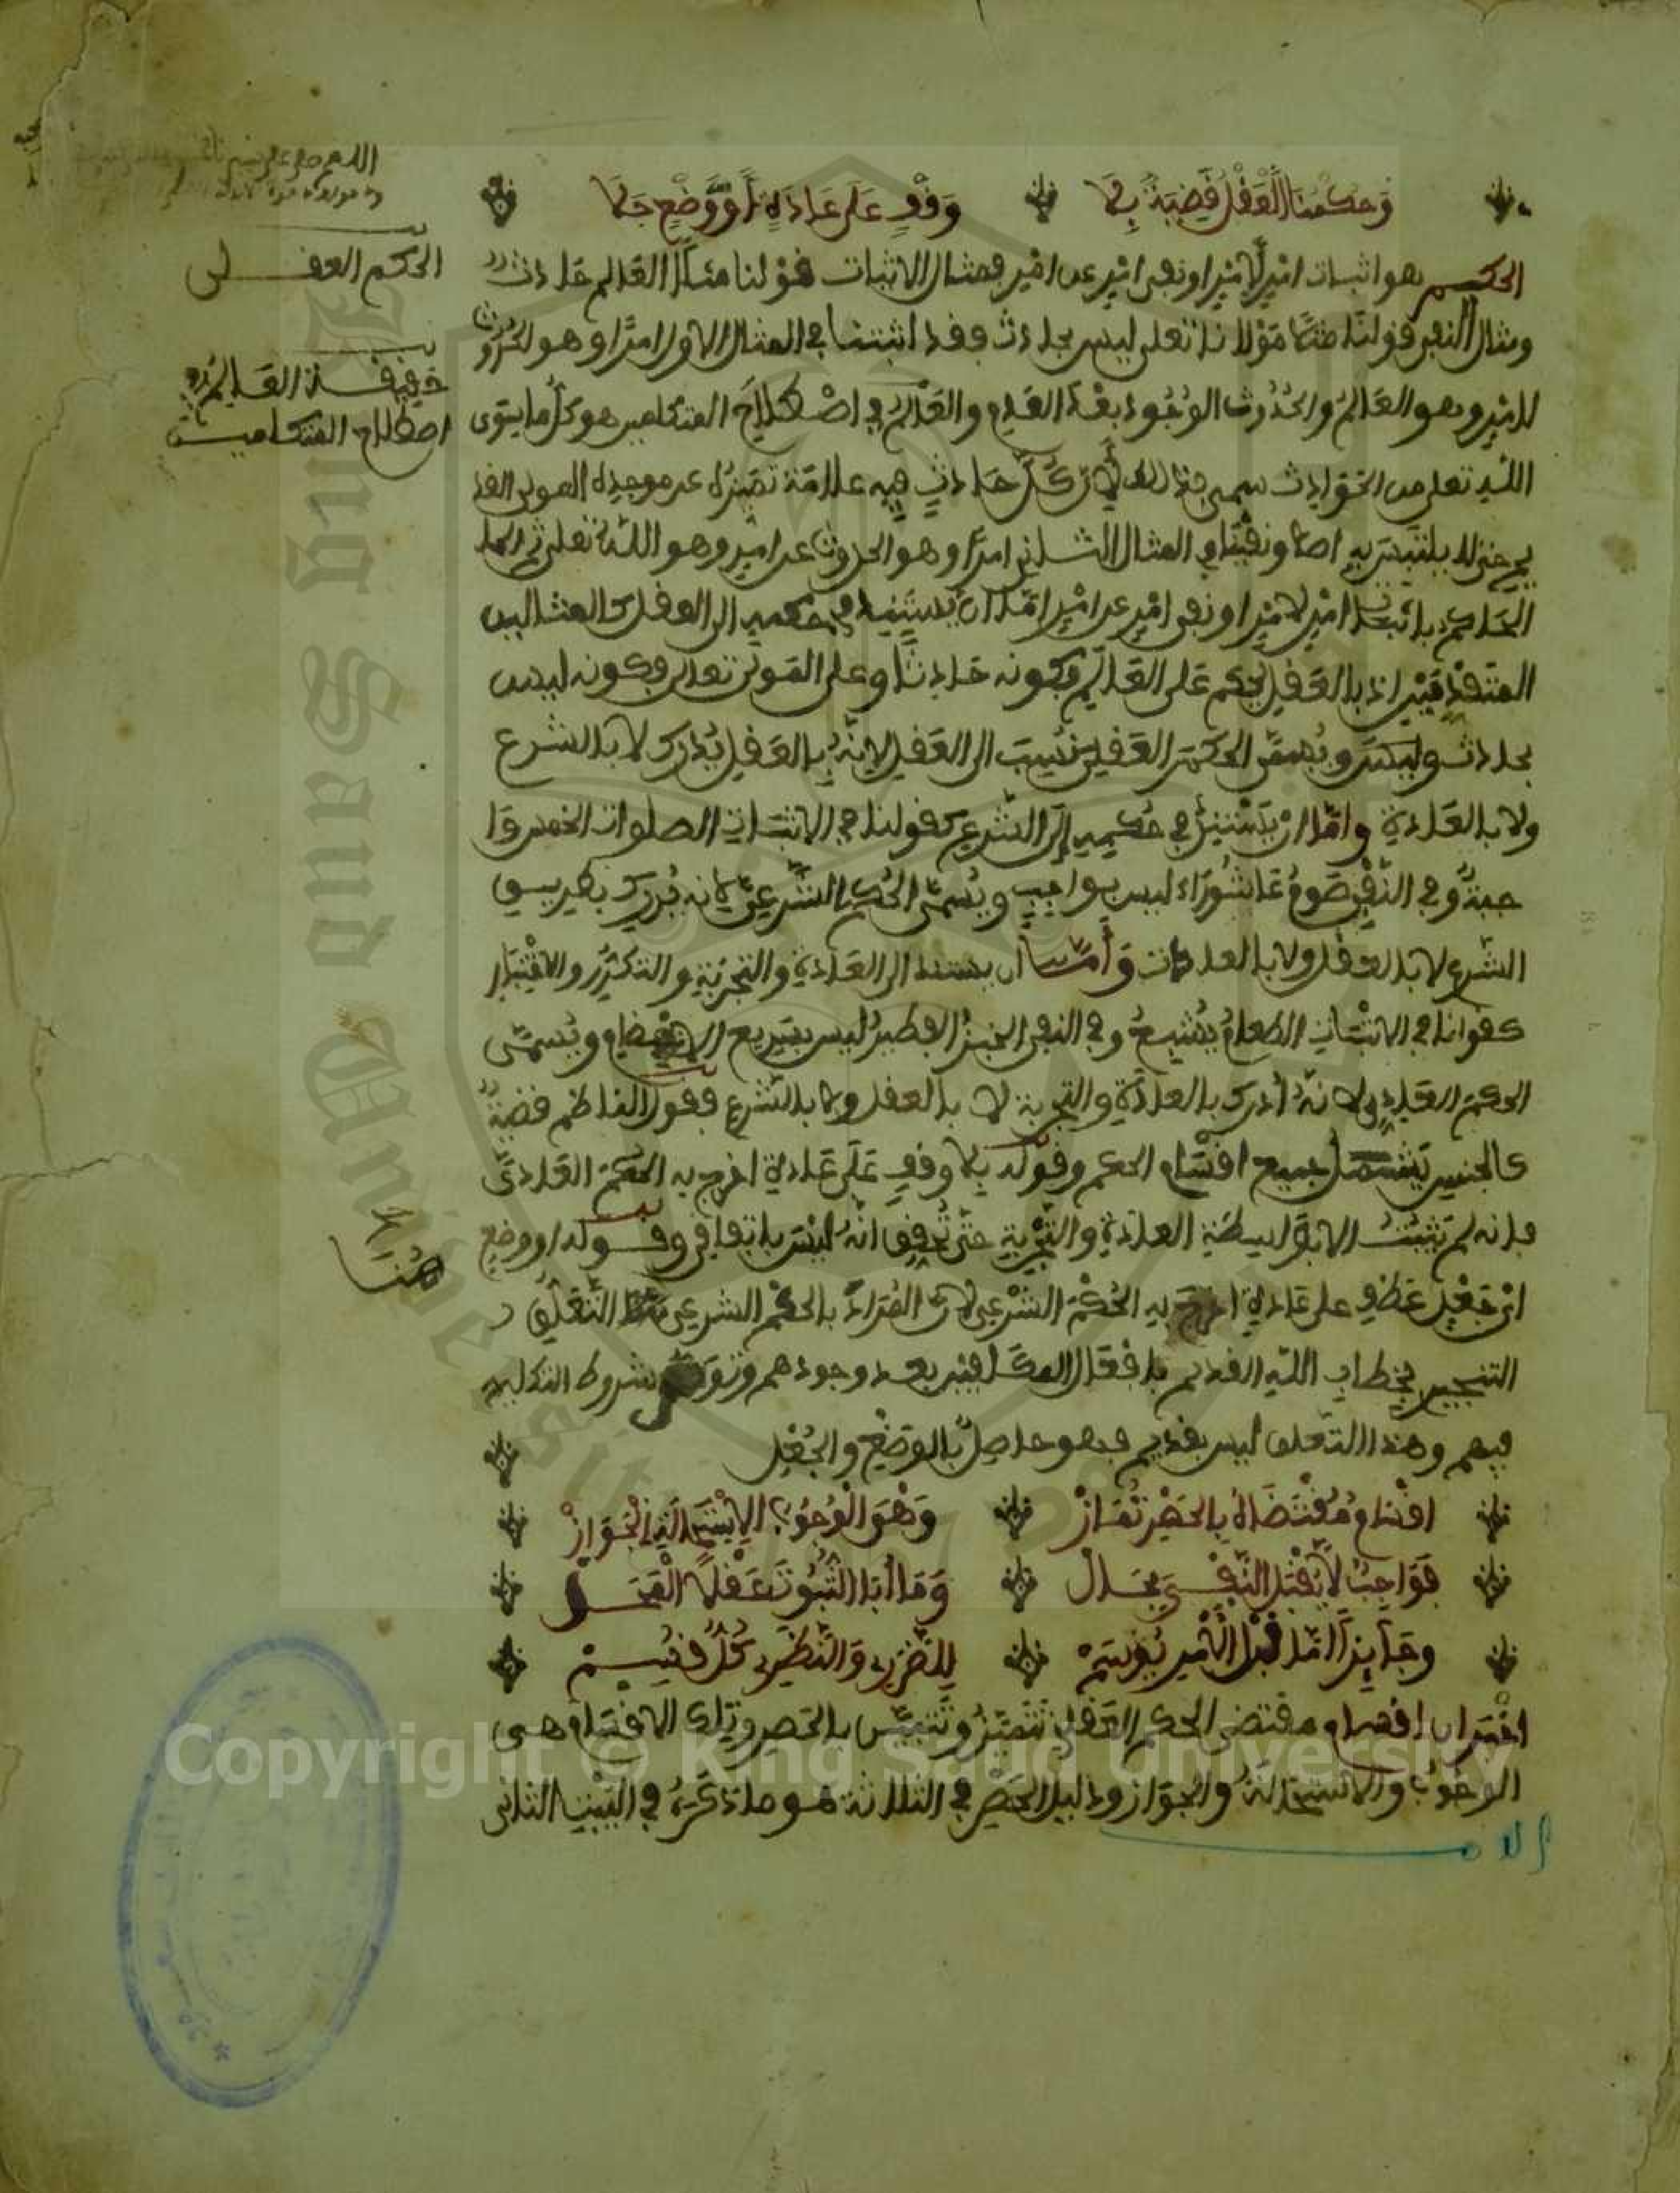 وَحُكْمُنَا الْعَقْلِي قَضِيَّةٌ بِلَا وَقْفٍ عَلَى عَادَةٍ أَوْ وَضْعٍ جَلَا
الحكم هو اثبات امر لامر او نفي امر عن امر فمثال الاثبات قولنا مثلا العالم حادث
ومثال النفي قولنا مثلا مولانا تعلى ليس بحادث فقد اثبتنا في المثال الاول امرا وهو الحدوث
لامر وهو العالم والحدوث الوجود بعد العدم والعالم في اصطلاح المتكلمين هو كل ما سوى
الله تعلى من الحوادث سمي بذلك لان كل حادث فيه علامة تميزه عن موجده المولى القد
يم حتى لا يلتبس به اصلا ونفينا في المثال الثاني امرا وهو الحدوث عن امر وهو الله تعلى ثم الحا
الحاكم باثبات امر لامر او نفي امر عن امر اما ان يستند في حكمه الى العقل كالمثالين
المتقدمين اذ بالعقل يحكم على العالم بكونه حادثا وعلى المولى تعلى بكونه ليس
بحادث ويسمى الحكم العقلي نسبة الى العقل لانه بالعقل يدرك لا بالشرع
ولا بالعادة واما ان يستند في حكمه إلى الشرع كقولنا في الاثبات الصلوات الخمس وا
جبة وفي النفي صوم عاشوراء ليس بواجب ويسمى الحكم الشرعي لانه يدرك بطريق
الشرع لا بالعقل ولا بالعادات وأما ان يستند الى العادة والتجربة والتكرر والاختبار
كقولنا في الاثبات الطعام يشبع وفي النفي الخبز الفطير ليس بسريع الانهضام ويسمى
الحكم العادي لانه أدرك بالعادة والتجربة لا بالعقل ولا بالشرع فقول الناظم قضية
كالجنس يشمل جميع اقسام الحكم وقوله بلا وقف على عادة اخرج به الحكم العادي
فانه لم يثبت الا بواسطة العادة والتجربة حتى تحقق انه ليس باتفاقي وقوله او وضع
اي جعل عطف على عادة اخرج به الحكم الشرعي لان المراد بالحكم الشرعي التعلق
التنجيزي لخطاب الله القديم بافعال المكلفين بعد وجودهم وتوفر شروط التكليف
فيهم وهذا التعلق ليس بقديم فهو حاصل بالوضع والجعل
اقسام مقتضاه بالحصر تماز وهو الوجوب الاستحالة الجواز
فواجب لا يقبل النفي بحال وما أبا الثبوت عقلا المحال
وجايزا ما قبل الامرين سم للضروري والنظري كل قسم
اخبر ان اقسام مقتضى الحكم العقلي تتميز وتتبين بالحصر وتلك الاقسام هي
الوجوب والاستحالة والجواز ودليل الحصر في الثلاثة هو ما ذكره في البيت الثاني
الحكم العقلي
حقيقة العالم في
اصطلاح المتكلمين
هنا
Copyright © King Saud University
King Saud University